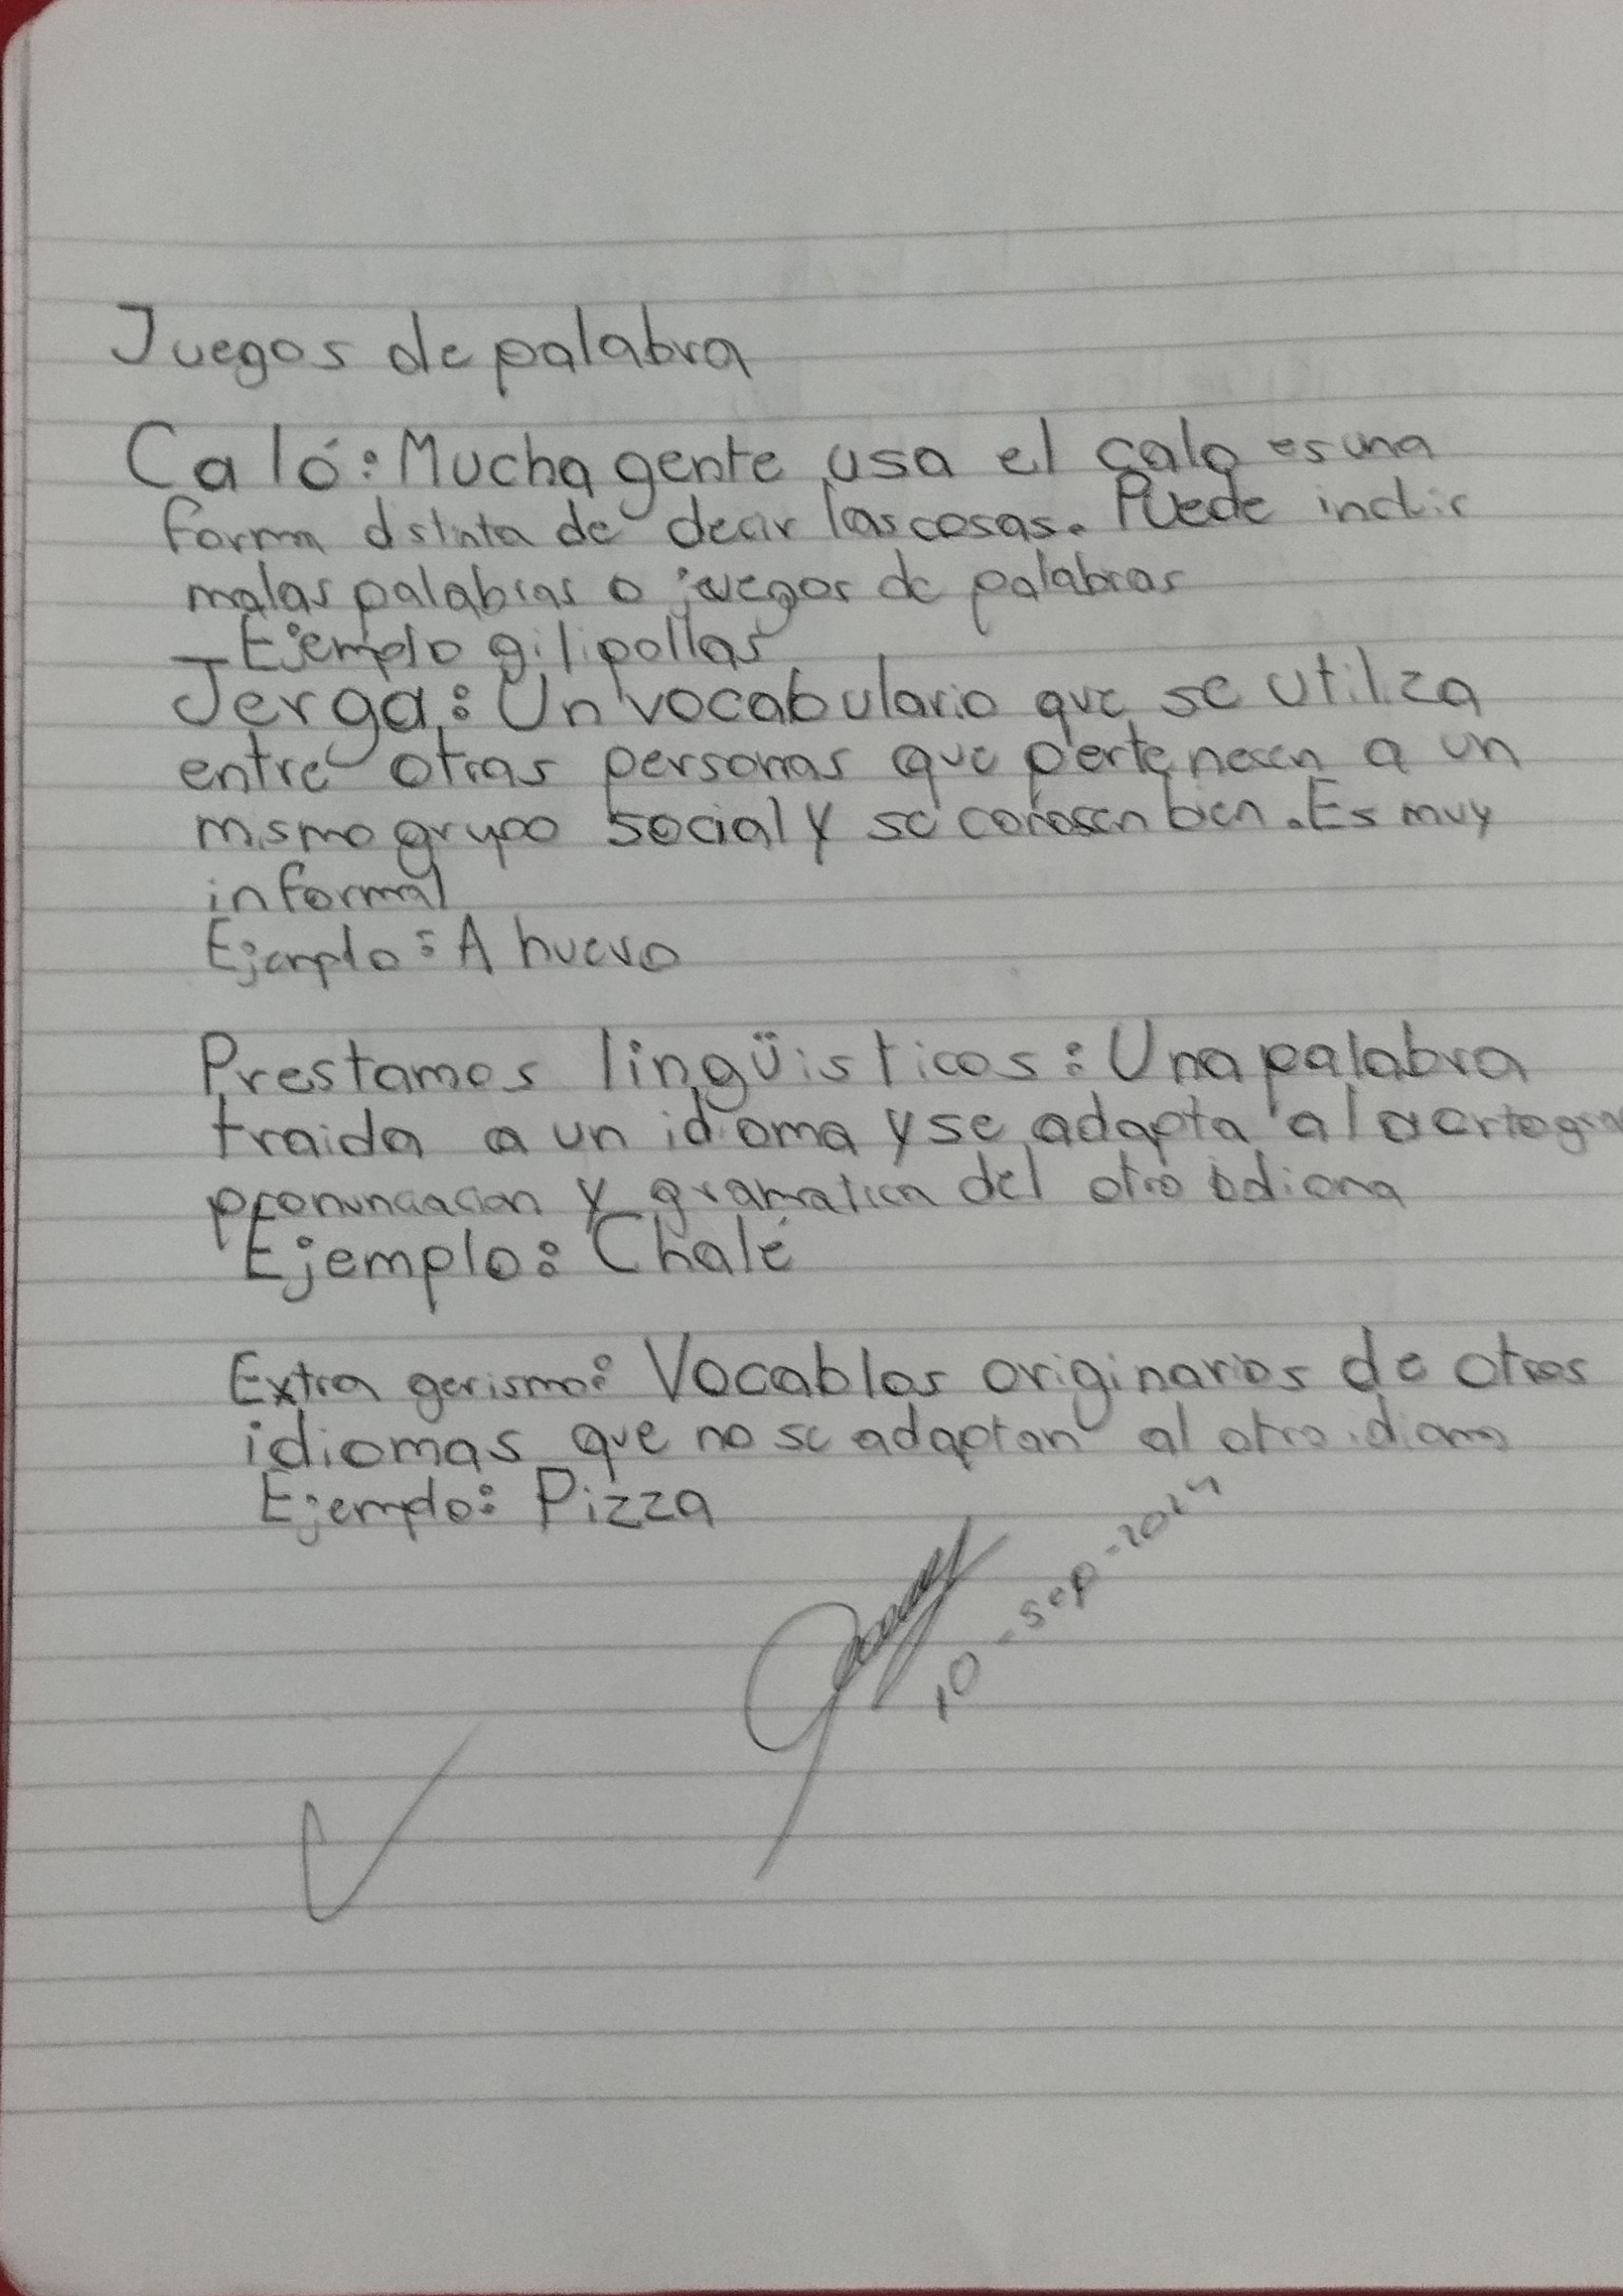 Juegos de palabra
Caló: Mucha gente usa el calo es una
forma dstinta de decir las cosas. Puede incluir
malas palabras o juegos de palabras
Ejemplo gilipollas
Jerga: Un vocabulario que se utiliza
entre otras personas que pertenecen a un
mismo grupo social y se conosen bien. Es muy
informal
Ejemplo: A huevo
Prestamos lingüisticos: Una palabra
traida a un idioma y se adapta a la
pronunciacion y gramatica del otro idioma
Ejemplo: Chalé
Extra gerismo: Vocablos originarios de otros
idiomas que no se adaptan al otro idioma
Ejemplo: Pizza
10-sep-2024